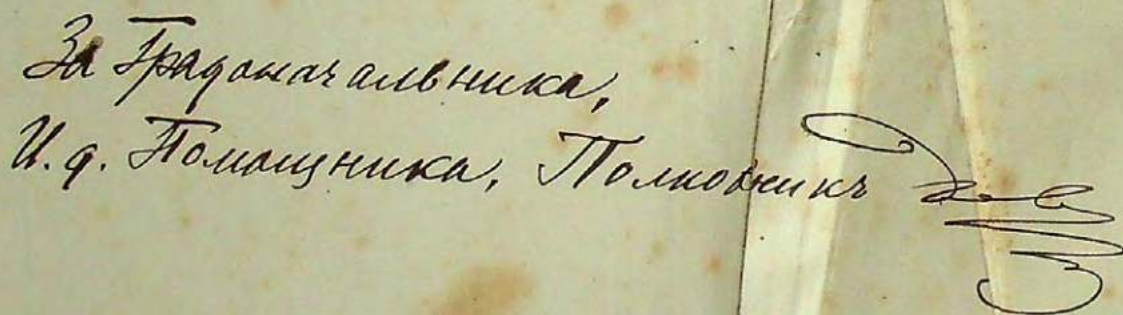 За Градоначальника,
И.д. Помощника, Полковникъ